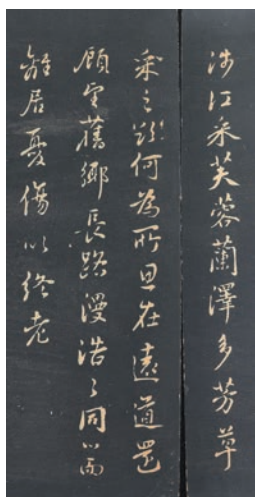 涉江采芙蓉蘭澤多芳草
采之欲何為所思在遠道還
顧望舊鄉長路漫浩々同心而
離居憂傷以終老